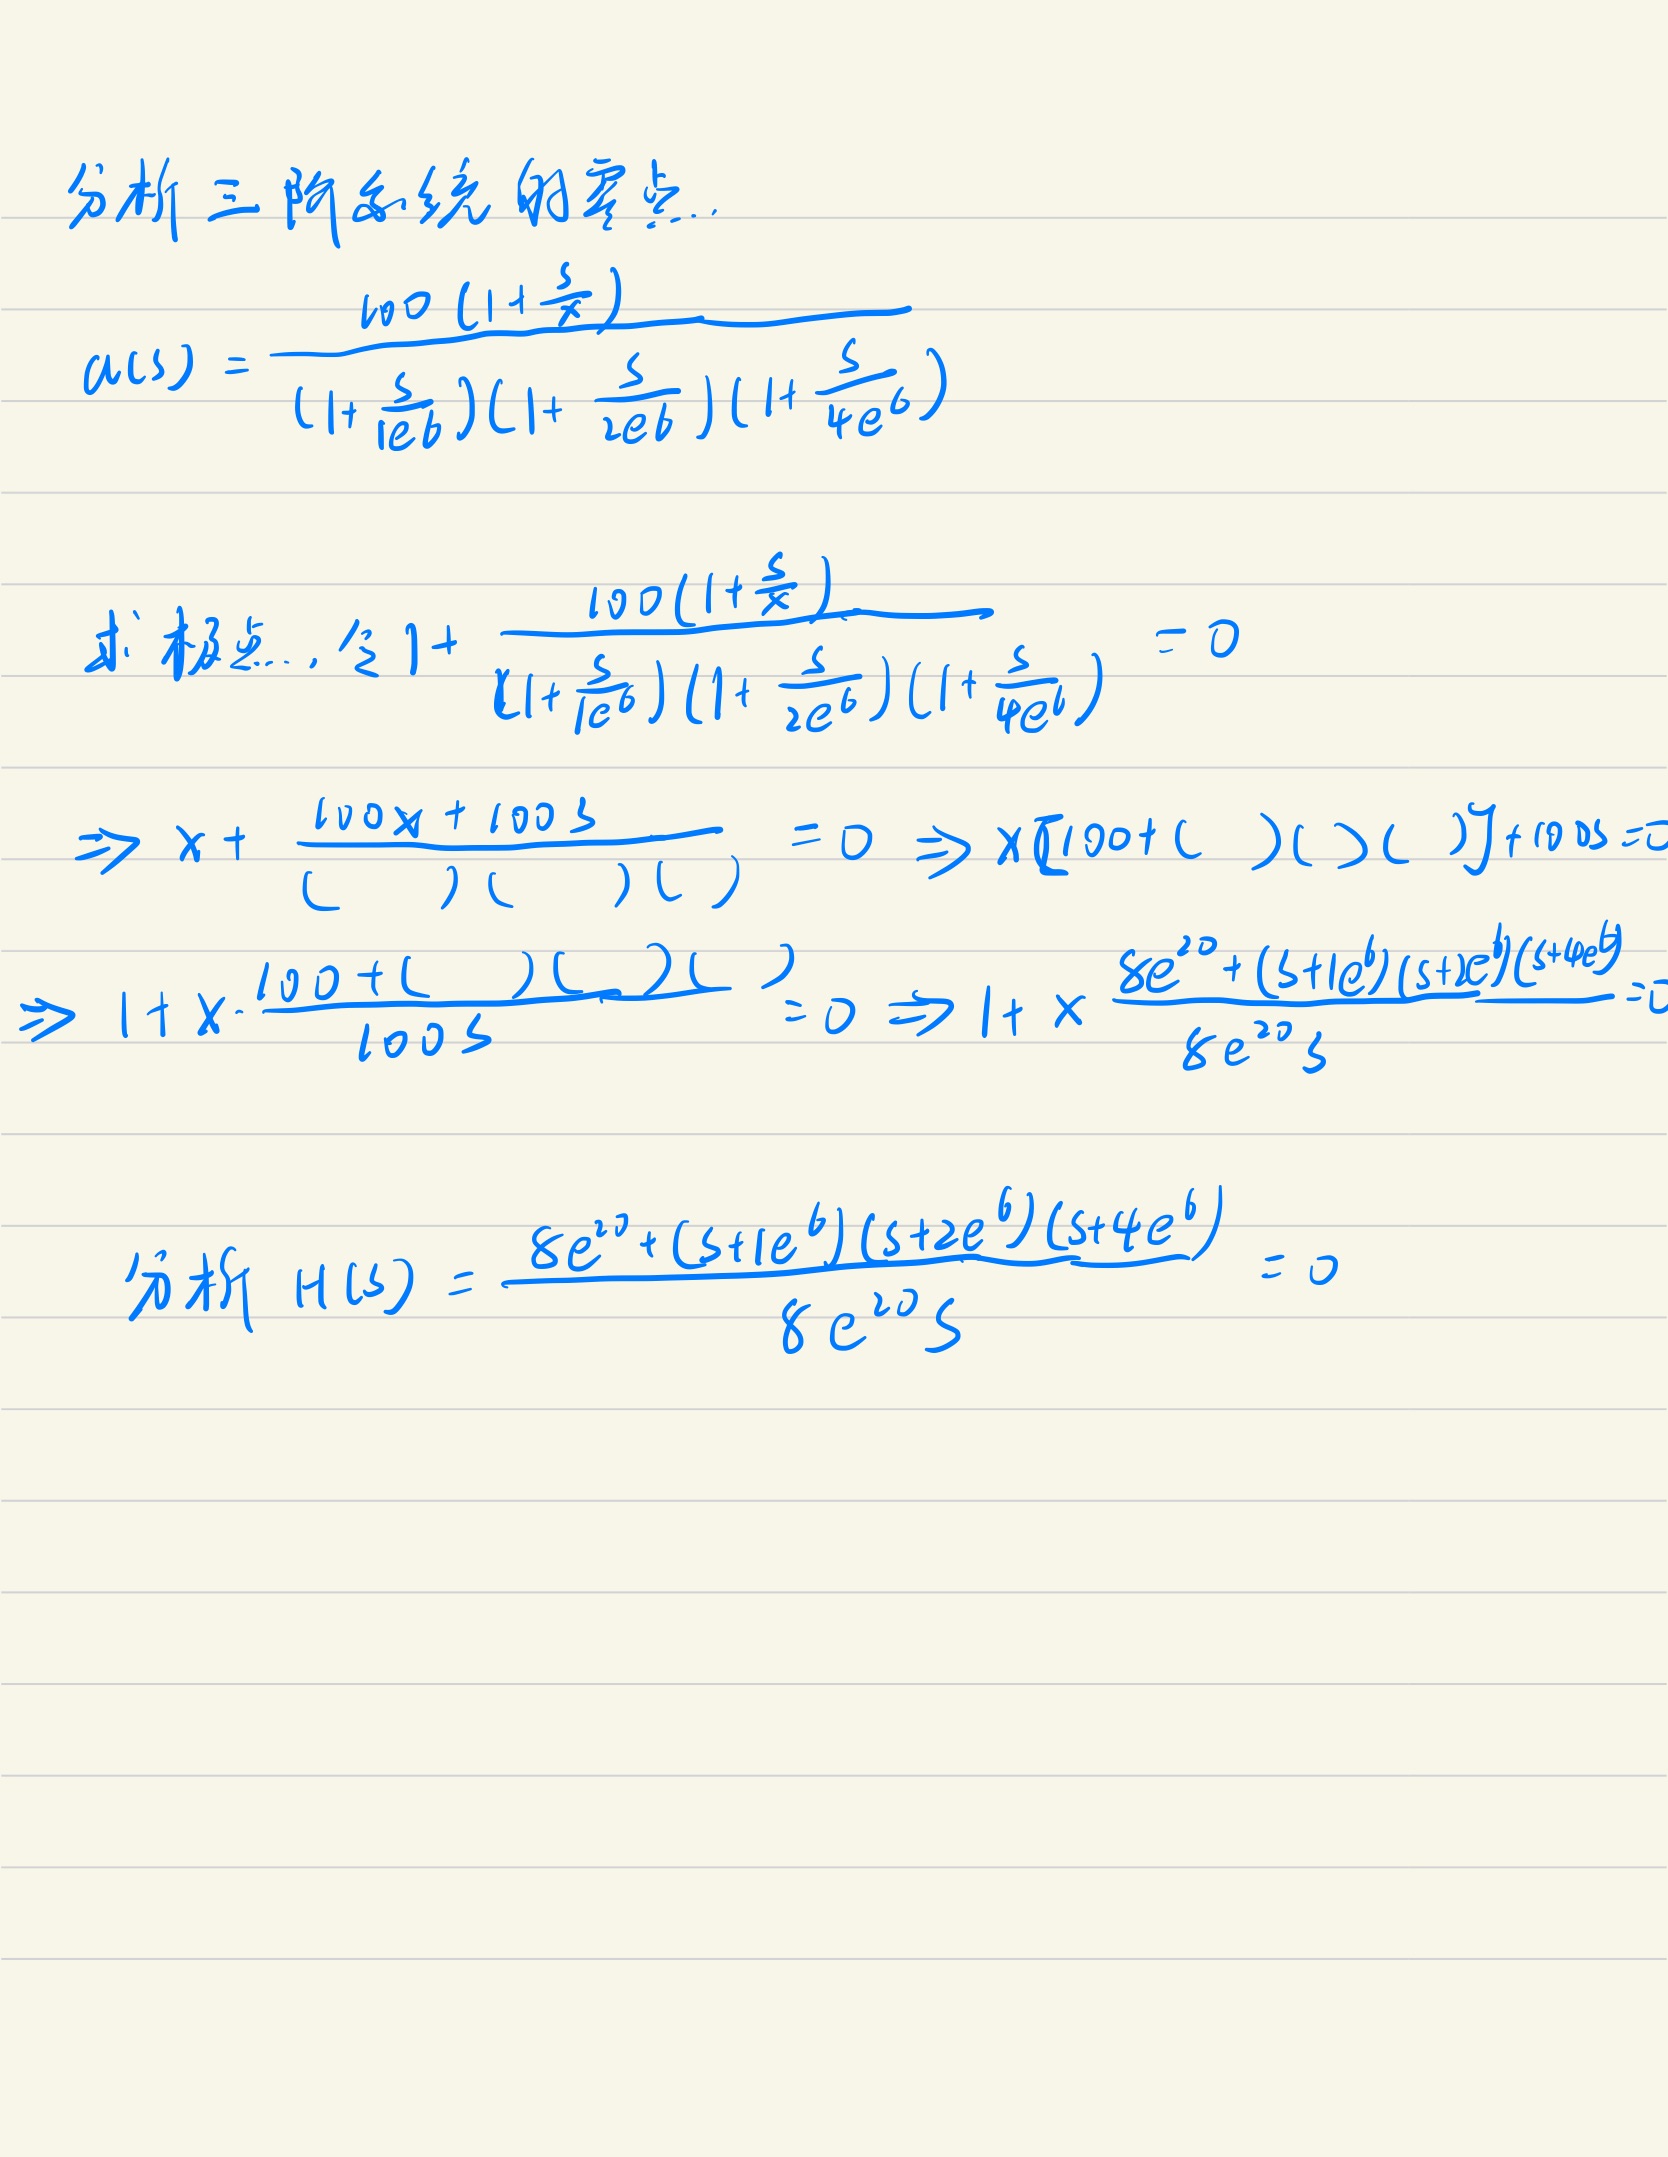 分析三阶系统的零点.
a(s) = 100(1+s/x) / (1+s/1e6)(1+s/2e6)(1+s/4e^6)
求极点, 令 1+ 100(1+s/x) / (1+s/1e^6)(1+s/2e^6)(1+s/4e^6) =0
⇒ x+ 100x+100s / ( )( )( ) =0 ⇒ x[100+( )( )( )]+100s=0
⇒ 1+x· 100+( )( )( ) / 100s =0 ⇒ 1+x 8e^20+(s+1e^6)(s+2e^6)(s+4e^6) / 8e^20 s =0
分析 H(s) = 8e^20+(s+1e^6)(s+2e^6)(s+4e^6) / 8e^20 s =0